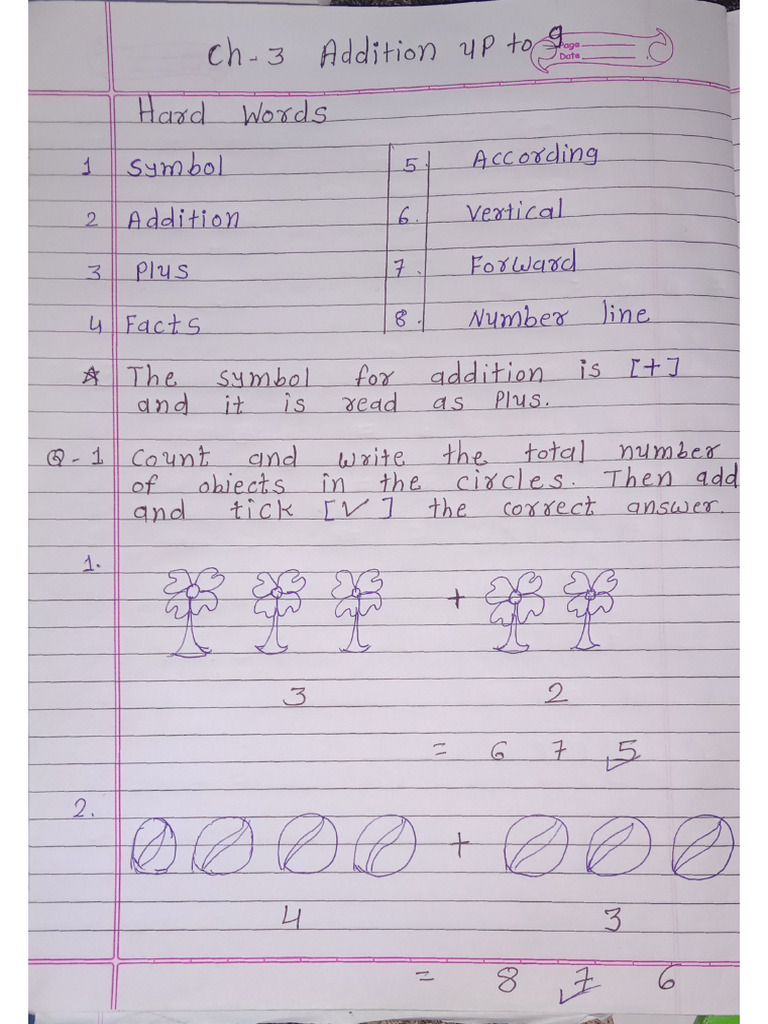 Ch-3 Addition up to 9
Page
Date
Hard Words
1 Symbol 5. According
2 Addition 6. Vertical
3 Plus 7. Forward
4 Facts 8. Number line
☆ The symbol for addition is [+]
and it is read as Plus.
Q-1 Count and write the total number
of objects in the circles. Then add
and tick [✓] the correct answer.
1.
+
3 2
= 6 7 5 ✓
2.
+
4 3
= 8 7 ✓ 6